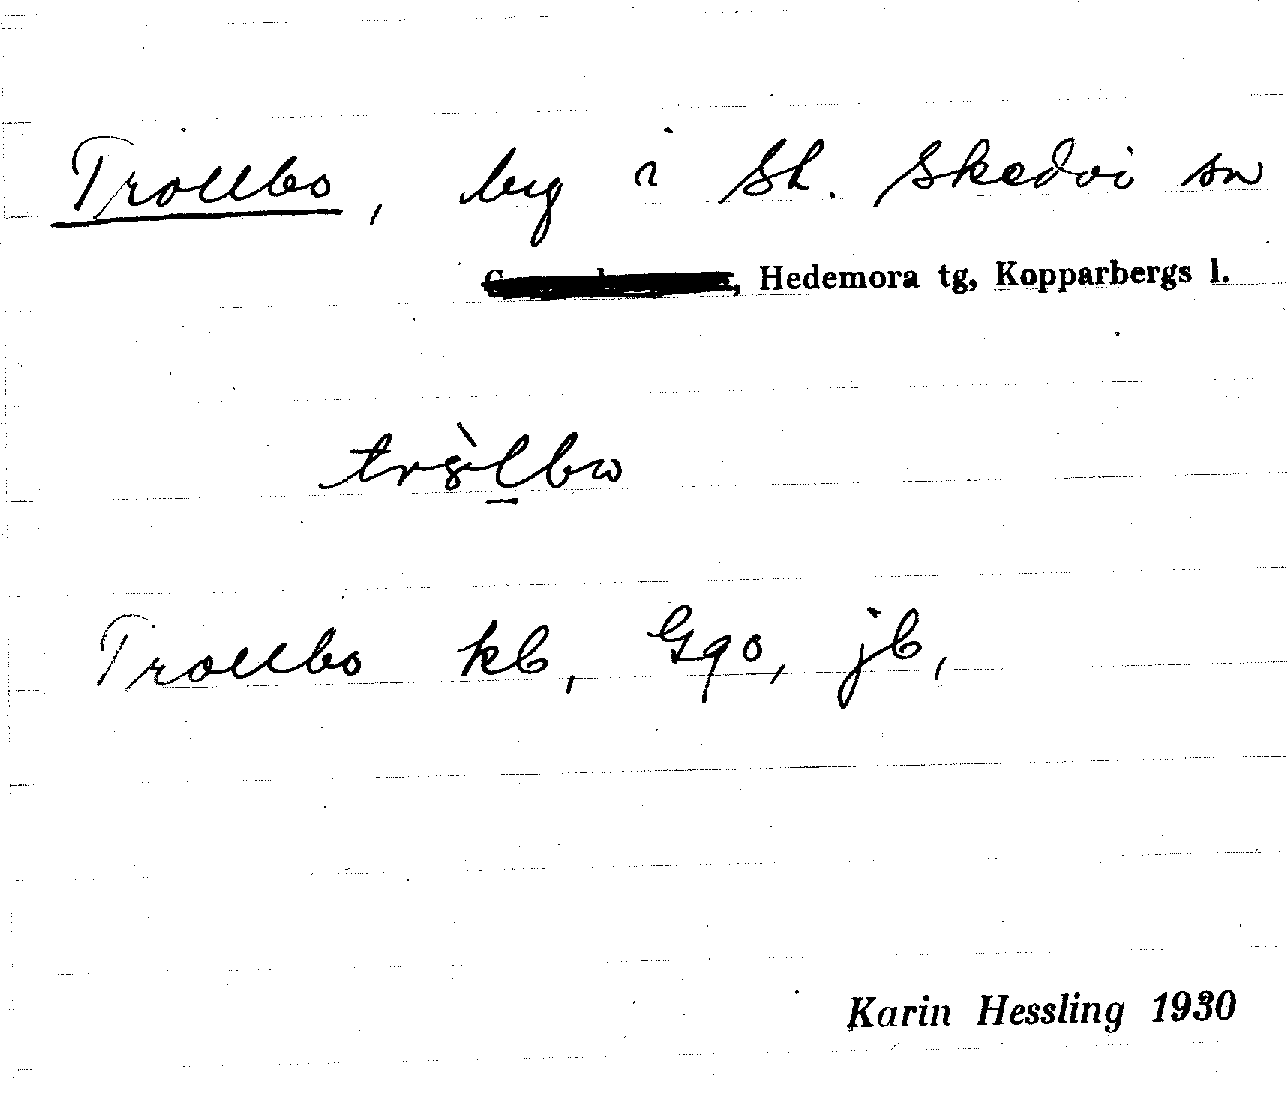 Trollbo, by i St. Skedvi sn
, Hedemora tg, Kopparbergs l.
Trollbo kb, Ggo, jb,
Karin Hessling 1930